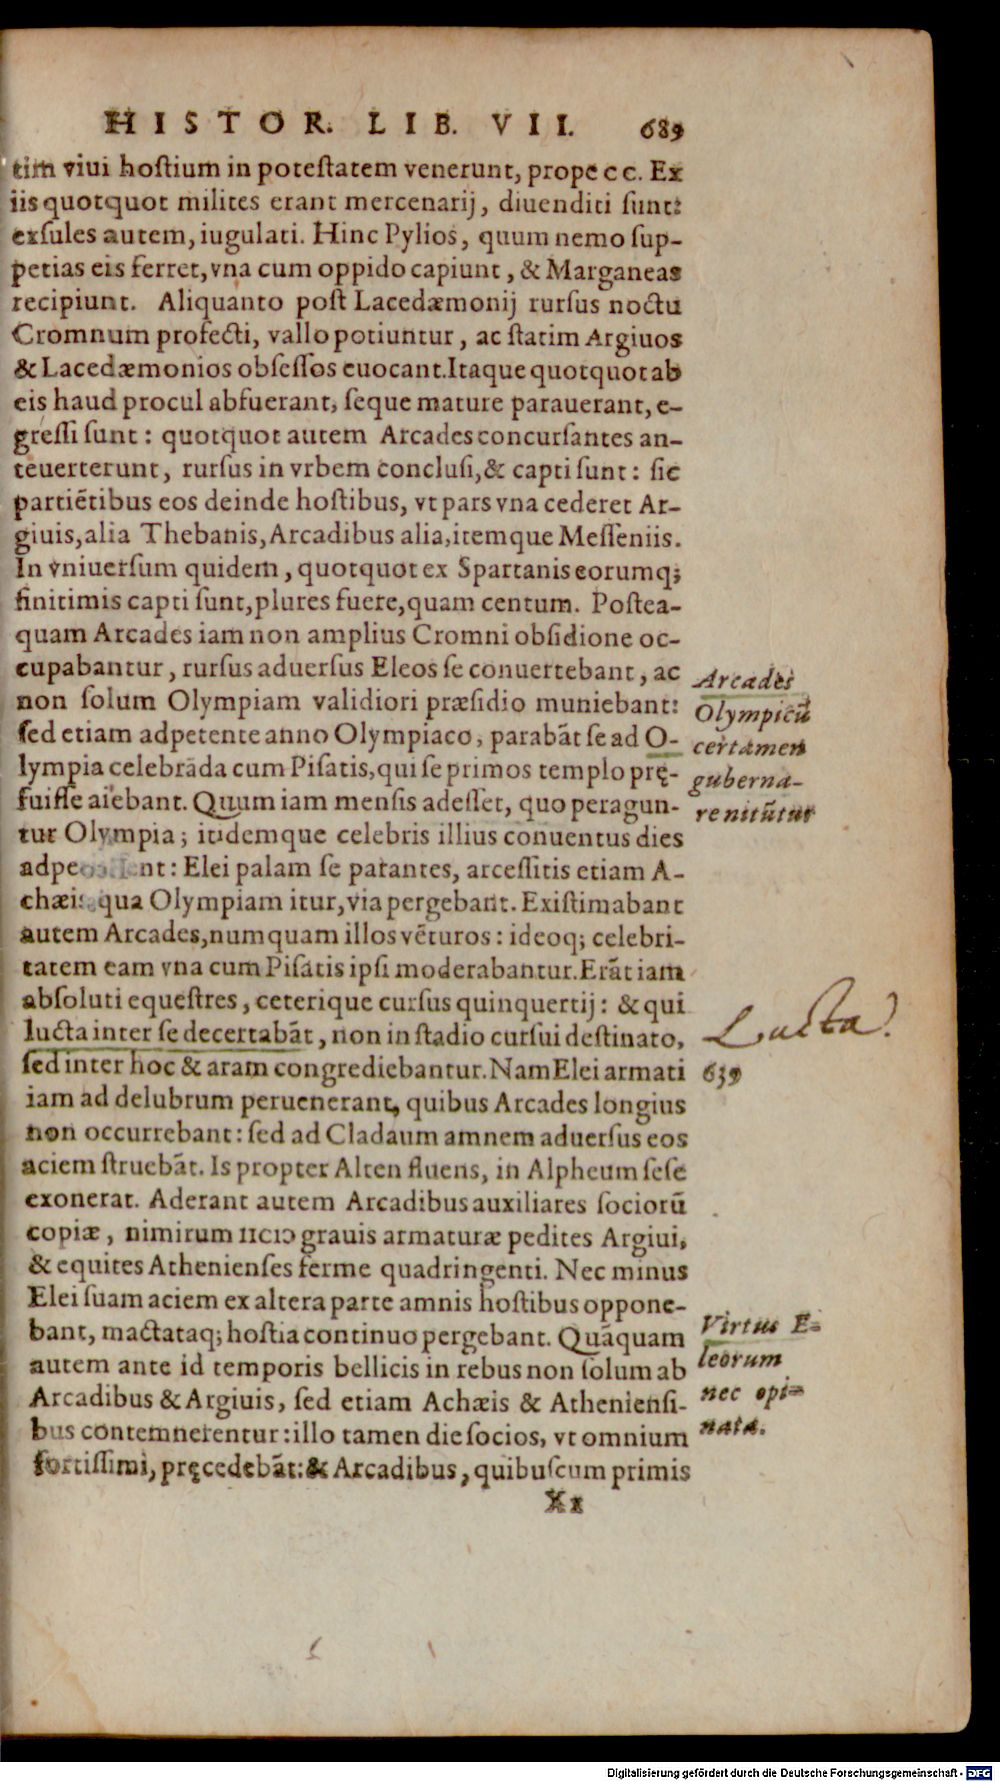 HISTOR. LIB. VII. 689
tim viui hostium in potestatem venerunt, prope cc. Ex
iis quotquot milites erant mercenarij, diuenditi sunt:
exsules autem, iugulati. Hinc Pylios, quum nemo sup-
petias eis ferret, vna cum oppido capiunt, & Marganeas
recipiunt. Aliquanto post Lacedæmonij rursus noctu
Cromnum profecti, vallo potiuntur, ac statim Argiuos
& Lacedæmonios obsessos euocant. Itaque quotquot ab
eis haud procul abfuerant, seque mature parauerant, e-
gressi sunt: quotquot autem Arcades concursantes an-
teuerterunt, rursus in vrbem conclusi, & capti sunt: sic
partiētibus eos deinde hostibus, vt pars vna cederet Ar-
giuis, alia Thebanis, Arcadibus alia, itemque Messeniis.
In vniuersum quidem, quotquot ex Spartanis eorumq;
finitimis capti sunt, plures fuere, quam centum. Postea-
quam Arcades iam non amplius Cromni obsidione oc-
cupabantur, rursus aduersus Eleos se conuertebant, ac
non solum Olympiam validiori præsidio muniebant:
sed etiam adpetente anno Olympiaco, parabāt se ad O-
lympia celebrāda cum Pisatis, qui se primos templo prę-
fuisse aiebant. Quum iam mensis adesset, quo peragun-
tur Olympia; itidemque celebris illius conuentus dies
Elei palam se parantes, arcessitis etiam A-
chæis, qua Olympiam itur, via pergebant. Existimabant
autem Arcades, numquam illos vēturos: ideoq; celebri-
tatem eam vna cum Pisatis ipsi moderabantur. Erāt iam
absoluti equestres, ceterique cursus quinquertij: & qui
lucta inter se decertabāt, non in stadio cursui destinato,
sed inter hoc & aram congrediebantur. Nam Elei armati
iam ad delubrum peruenerant, quibus Arcades longius
non occurrebant: sed ad Cladaum amnem aduersus eos
aciem struebāt. Is propter Alten fluens, in Alpheum sese
exonerat. Aderant autem Arcadibus auxiliares sociorū
copiæ, nimirum IICIƆ grauis armaturæ pedites Argiui,
& equites Athenienses ferme quadringenti. Nec minus
Elei suam aciem ex altera parte amnis hostibus oppone-
bant, mactataq; hostia continuo pergebant. Quāquam
autem ante id temporis bellicis in rebus non solum ab
Arcadibus & Argiuis, sed etiam Achæis & Atheniensi-
bus contemnerentur: illo tamen die socios, vt omnium
fortissimi, pręcedebāt: & Arcadibus, quibuscum primis
Xx
Arcades
Olympicū
certamen
guberna-
re nitūtur
Lucta.
639
Virtus E-
leorum
nec opi-
nata.
Digitalisierung gefördert durch die Deutsche Forschungsgemeinschaft - DFG